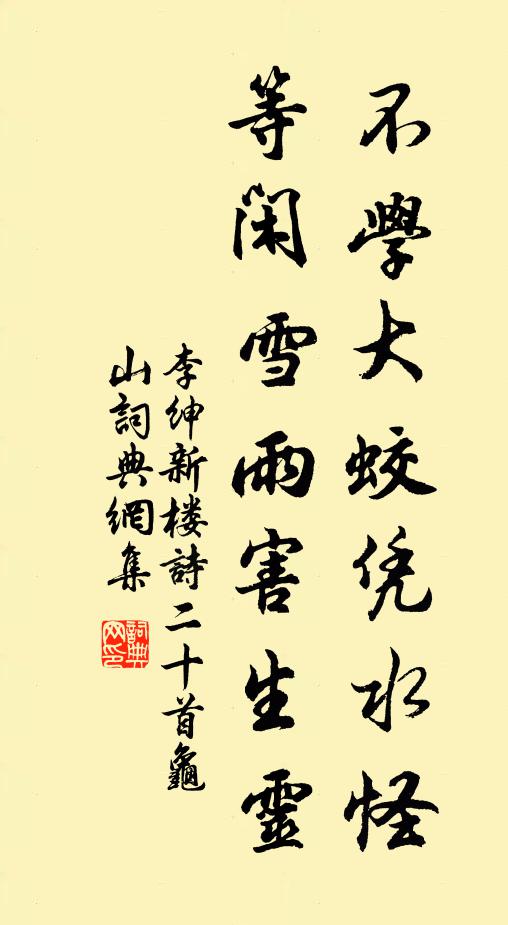 不學大蛟凭水怪
等闲雪雨害生靈
李紳新楼詩二十首龜
山詞典網集
詞典網印